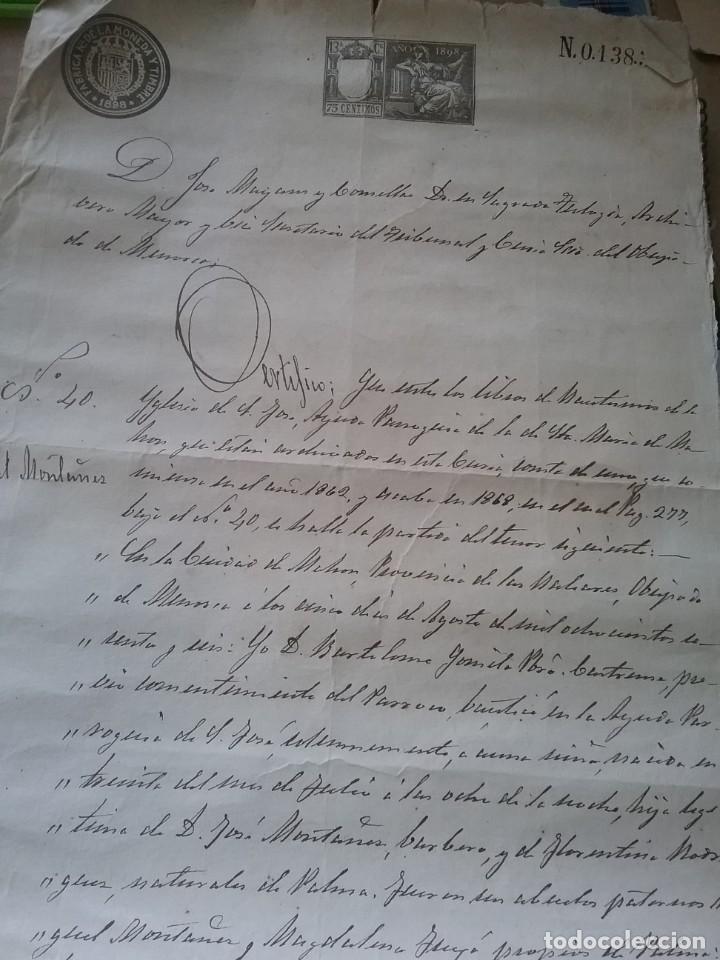 FABRICA N. DE LA MONEDA Y TIMBRE
* 1898 *
13ª Cˢ AÑO 1898
75 CENTIMOS
N.0.138.:
D. Jose y Comellas Dr. en Sagrada Teología, Archi-
vero Mayor y Vice Secretario del Tribunal y Curia Ecca. del Obispa-
do de Menorca;
Certifico: Que entre los libros de Bautismos de la
Nº 40. Yglesia de S. Jose, Ayuda Parroquia de la de Sta. Maria de Ma-
hon, que estan archivados en esta Curia, consta de uno, que co-
l Montañez mienza en el año 1862, y acaba en 1868, en el cual Pag. 277,
bajo el Nº 40, se halla la partida del tenor siguiente: —
" En la Ciudad de Mahon, Provincia de las Baleares, Obispado
" de Menorca á los cinco dias de Agosto de mil ochocientos se-
" senta y seis: Yo D. Bartolome Gomila Pbro. Castrense, pre-
" vio consentimiento del Parroco, bauticé en la Ayuda Par-
" roquia de S. José, solemnemente, a una niña, nacida en
" treinta del mes de Julio á las ocho de la noche, hija legi
" tima de D. José Montañez, barbero, y de Florentina Rodr
" guez, naturales de Palma. Fueron sus abuelos paternos
" guel Montañez y Magdalena propios de Palma:
todocoleccion
todocoleccion.net